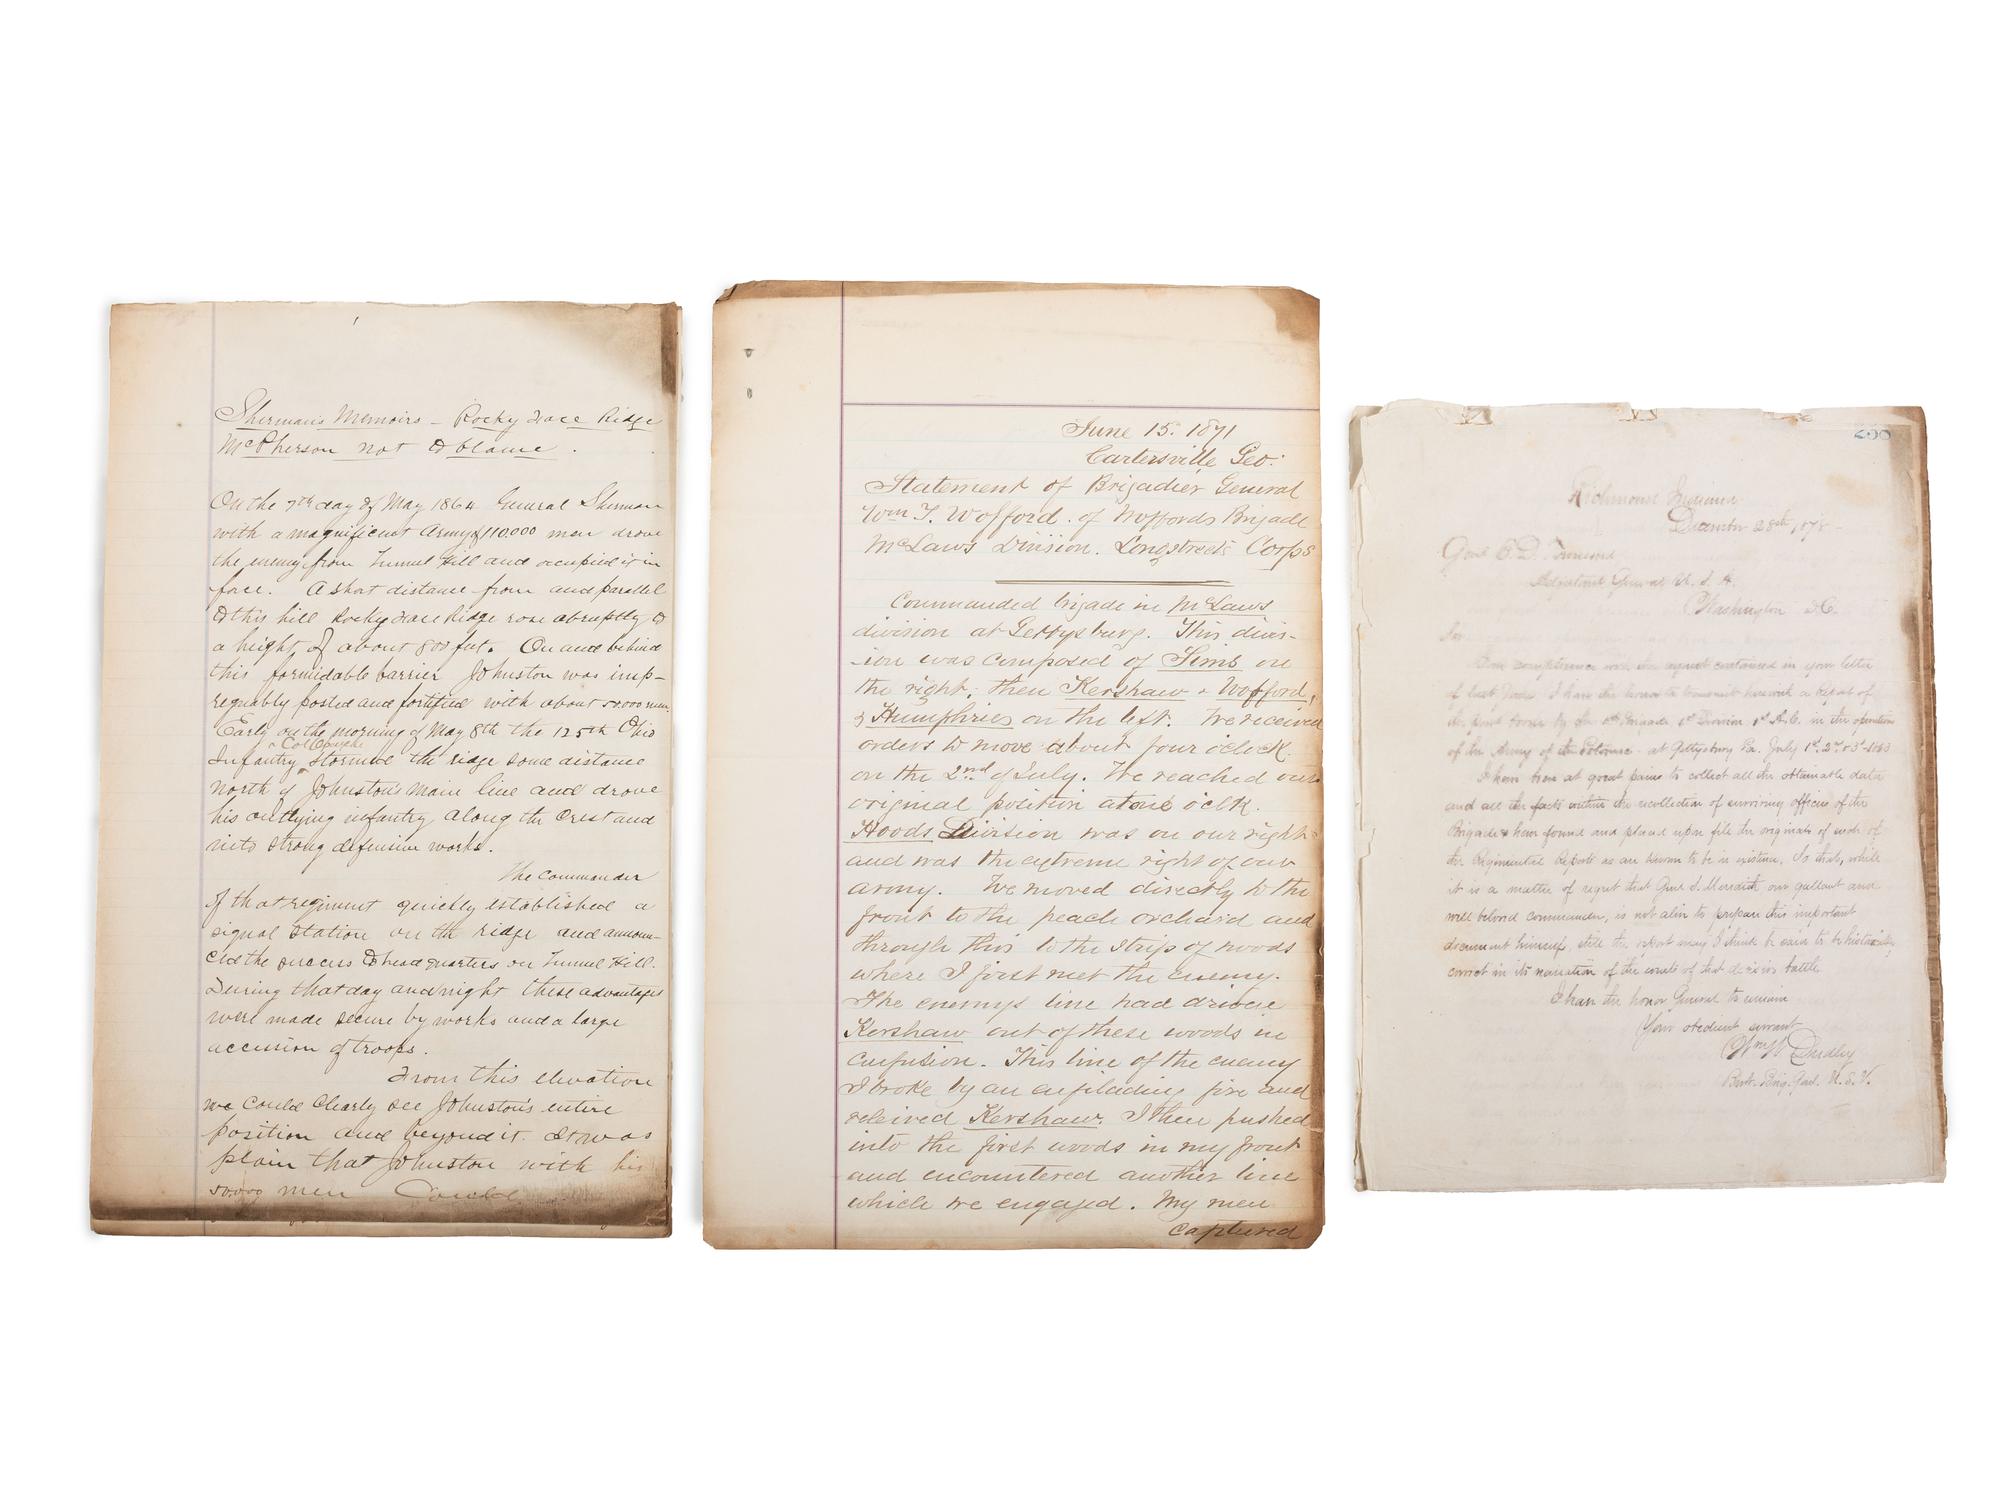 Sherman's Memoirs – Rocky Face Ridge
McPherson not to blame.
On the 7th day of May 1864 General Sherman
with a magnificent Army of 110.000 men drove
the enemy from Tunnel Hill and occupied it in
force. A short distance from and parallel
to this hill Rocky Face Ridge rose abruptly to
a height of about 800 feet. On and behind
this formidable barrier Johnston was imp-
regnably posted and fortified with about 50.000 men.
Early on the morning of May 8th the 125th Ohio
Infantry stormed the ridge some distance
north of Johnston's main line and drove
his outlying infantry along the crest and
into strong defensive works.
The commander
of that regiment quickly established a
signal station on the ridge and announ-
ced the success to headquarters on Tunnel Hill.
During that day and night these advantages
were made secure by works and a large
accession of troops.
From this elevation
we could clearly see Johnston's entire
position and beyond it. It was
plain that Johnston with his
50000 men could
June 15. 1871
Cartersville Geo.
Statement of Brigadier General
Wm T. Wofford. of Woffords Brigade
McLaws Division. Longstreets Corps
Commanded brigade in McLaws
division at Gettysburg. This divis-
-ion was composed of Sims on
the right, then Kershaw + Wofford,
& Humphries on the left. We received
orders to move about four oclock.
on the 2nd of July. We reached our
original position at one oclk.
Hoods Division was on our right
and was the extreme right of our
army. We moved directly to the
front to the peach orchard and
through this to the strip of woods
where I first met the enemy.
The enemys line had driven
Kershaw out of these woods in
confusion. This line of the enemy
I broke by an enfilading fire and
relieved Kershaw. I then pushed
into the first woods in my front
and encountered another line
which we engaged. My men
captured
200
Richmond Indiana
December 28th, 1878 –
Genl E. D. Townsend
Adjutant General U. S. A.
Washington D.C.
Sir
In compliance with the request contained in your letter
of last June I have the honor to transmit herewith a Report of
the part borne by the 1st Brigade 1st Division 1st A.C. in the operations
of the Army of the Potomac at Gettysburg Pa. July 1st, 2d & 3d 1863
I have been at great pains to collect all the obtainable data
and all the facts within the recollection of surviving officers of the
Brigade & have found and placed upon file the originals of such of
the Regimental Reports as are known to be in existence, so that, while
it is a matter of regret that Genl S. Meredith our gallant and
well beloved commander, is not alive to prepare this important
document himself, still the report may I think be said to be historically
correct in its narration of the events of that decisive battle
I have the honor General to remain
Your obedient servant
Wm W Dudley
Bvt. Brig. Genl. U.S.V.